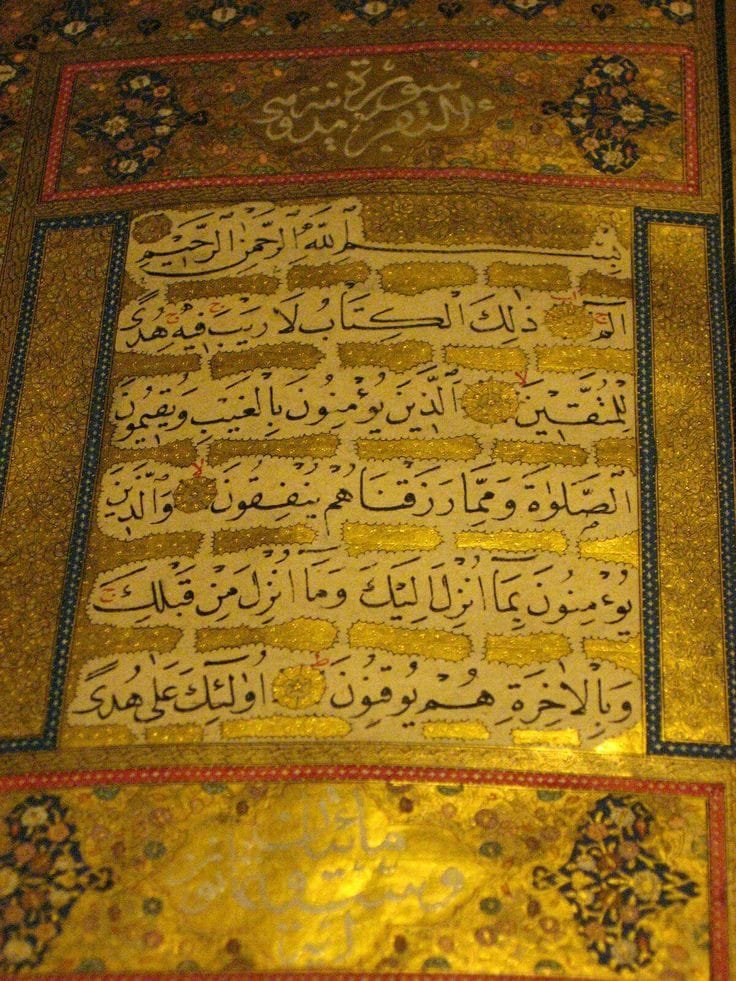 سورة البقرة مدنية وهى
بِسْمِ ٱللَّهِ ٱلرَّحْمٰنِ ٱلرَّحِيمِ
الٓمٓ ذٰلِكَ الْكِتَابُ لَا رَيْبَ فِيهِ هُدًى
لِلْمُتَّقِينَ اَلَّذِينَ يُؤْمِنُونَ بِالْغَيْبِ وَيُقِيمُونَ
الصَّلٰوةَ وَمِمَّا رَزَقْنَاهُمْ يُنْفِقُونَ وَالَّذِينَ
يُؤْمِنُونَ بِمَٓا اُنْزِلَ اِلَيْكَ وَمَٓا اُنْزِلَ مِنْ قَبْلِكَ
وَبِالْاٰخِرَةِ هُمْ يُوقِنُونَ اُولٰٓئِكَ عَلٰى هُدًى
مائتان